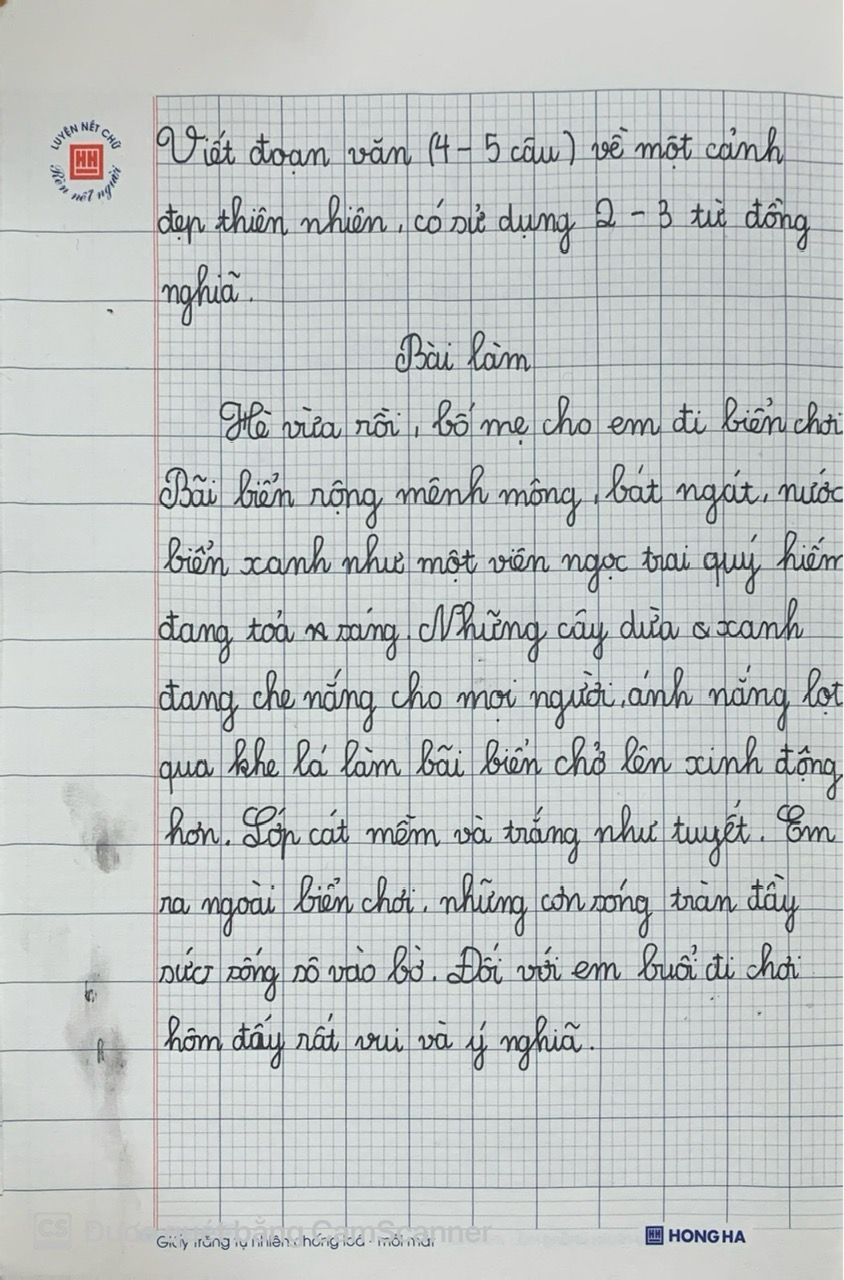 LUYỆN NÉT CHỮ
Rèn nết người
Viết đoạn văn (4 - 5 câu) về một cảnh
đẹp thiên nhiên, có sử dụng 2 - 3 từ đồng
nghiã.
Bài làm
Hè vừa rồi, bố mẹ cho em đi biển chơi
Bãi biển rộng mênh mông, bát ngát, nước
biển xanh như một viên ngọc trai quý hiếm
đang toả sáng. Những cây dừa xanh
đang che nắng cho mọi người, ánh nắng lọt
qua khe lá làm bãi biển chở lên xinh động
hơn. Lớp cát mềm và trắng như tuyết. Em
ra ngoài biển chơi, những cơn sóng tràn đầy
sức sống sô vào bờ. Đối với em buổi đi chơi
hôm đấy rất vui và ý nghiã.
CS Được quét bằng CamScanner
Giấy trắng tự nhiên chống loá - mỏi mắt
HH HONG HA